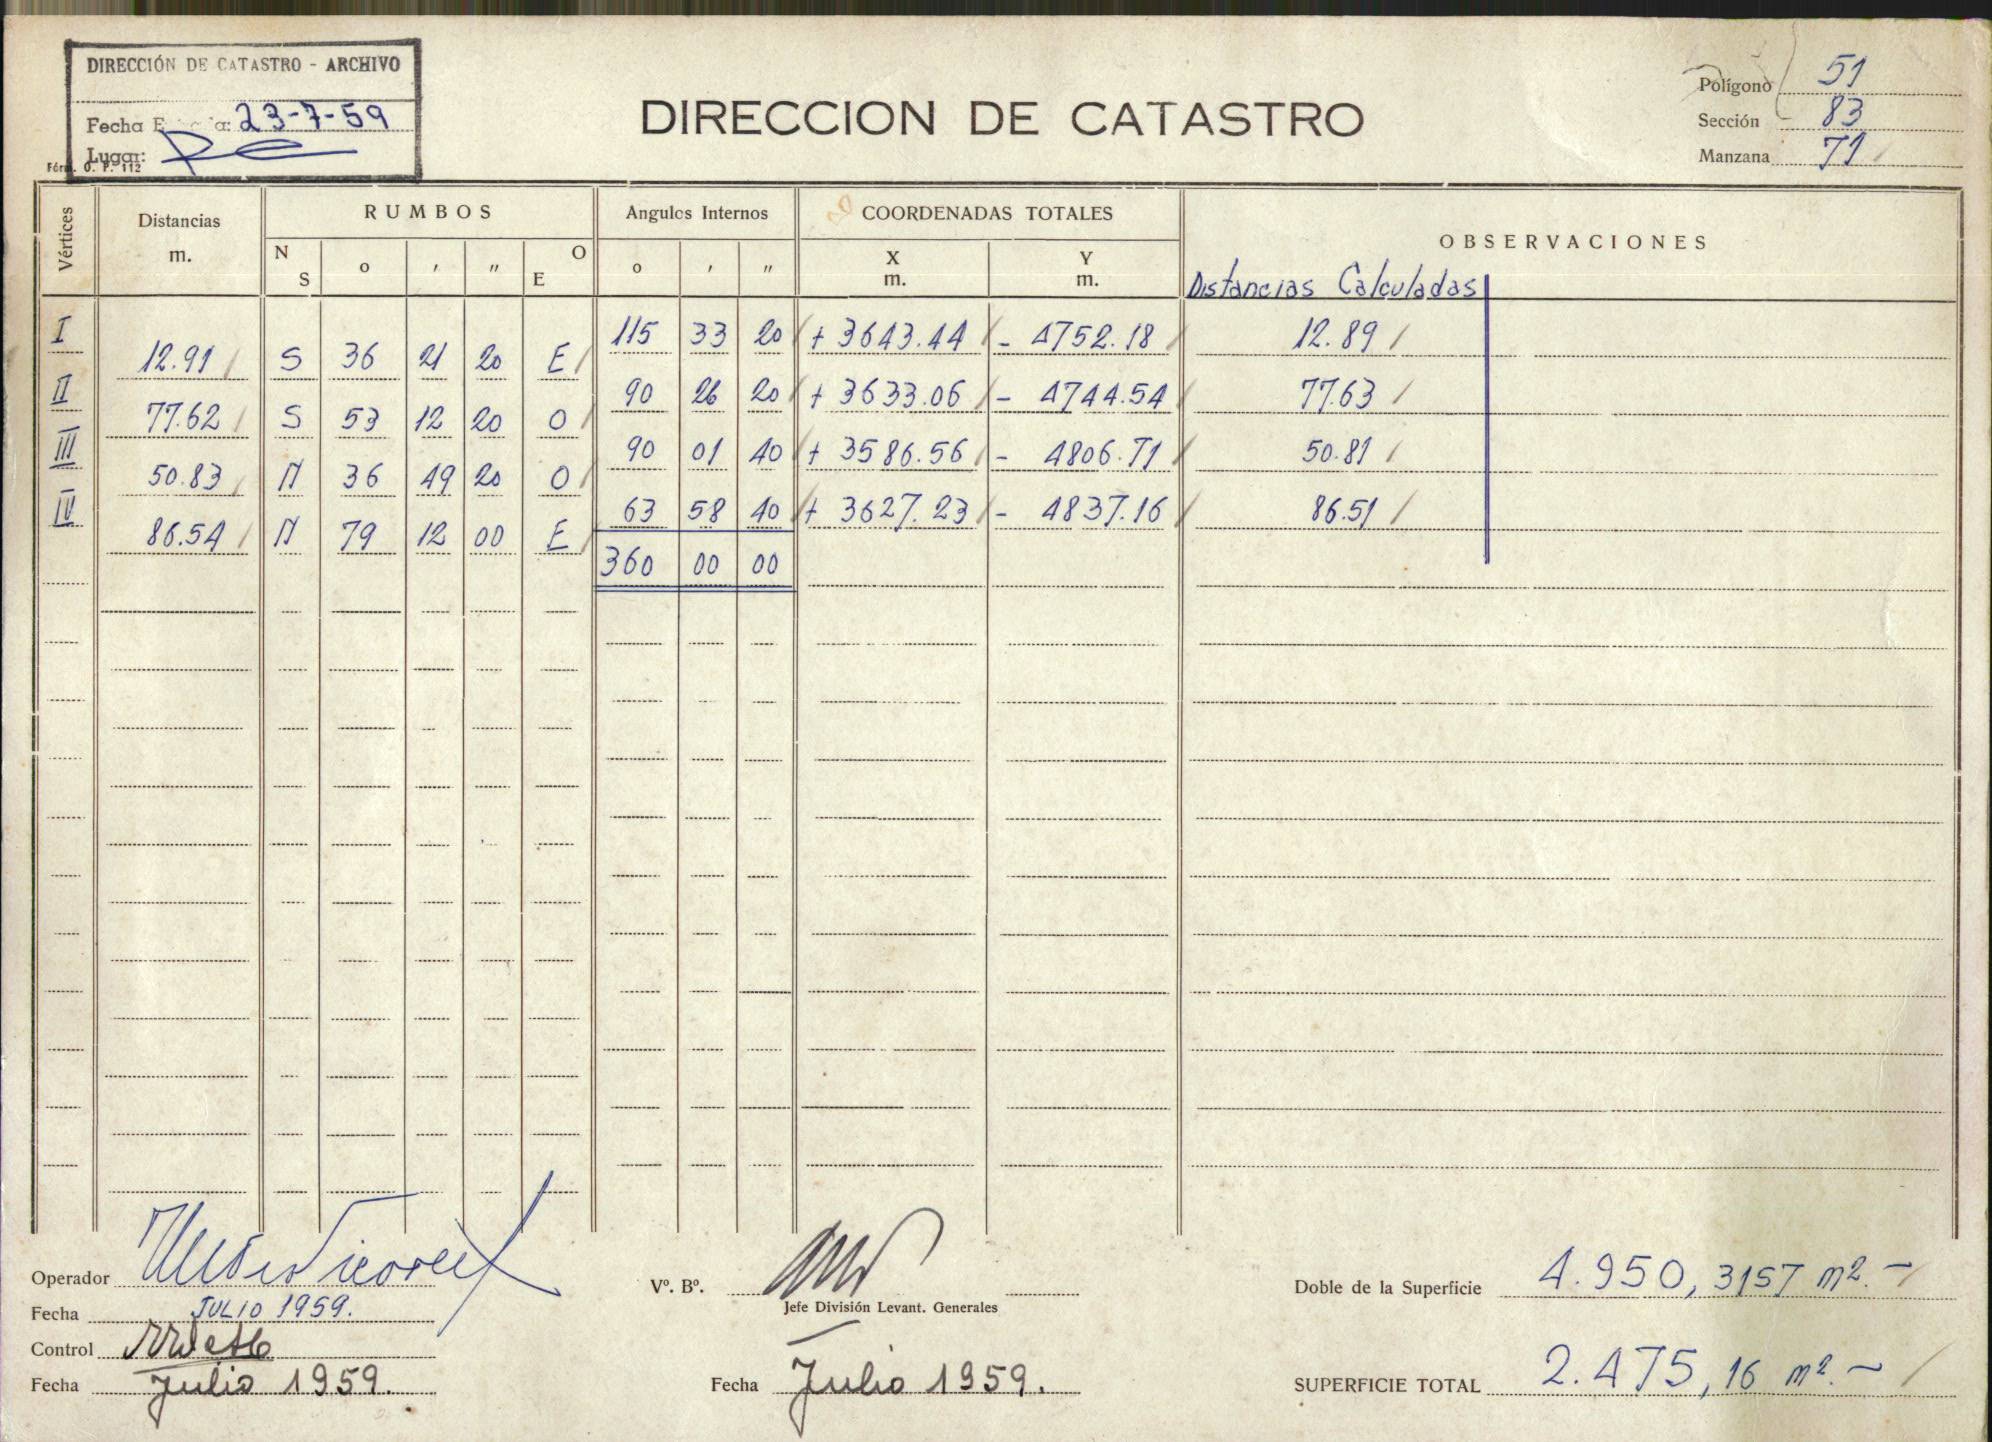 DIRECCIÓN DE CATASTRO - ARCHIVO
Fecha E a: 23-7-59
Lugar:
Fórm. O. P. 112
DIRECCION DE CATASTRO
Polígono 51
Sección 83
Manzana 71
Vértices
Distancias
m.
RUMBOS
N S o ' " E O
Angulos Internos
o ' "
COORDENADAS TOTALES
X
m.
Y
m.
OBSERVACIONES
Distancias Calculadas
I 115 33 20 + 3643.44 - 4752.18 12.89
12.91 S 36 21 20 E
II 90 26 20 + 3633.06 - 4744.54 77.63
77.62 S 53 12 20 O
III 90 01 40 + 3586.56 - 4806.71 50.81
50.83 N 36 49 20 O
IV 63 58 40 + 3627.23 - 4837.16 86.51
86.54 N 79 12 00 E
360 00 00
Operador
Fecha JULIO 1959.
Control
Fecha Julio 1959.
Vº. Bº.
Jefe División Levant. Generales
Fecha Julio 1959.
Doble de la Superficie 4.950,3157 m2.-
SUPERFICIE TOTAL 2.475,16 m2.-